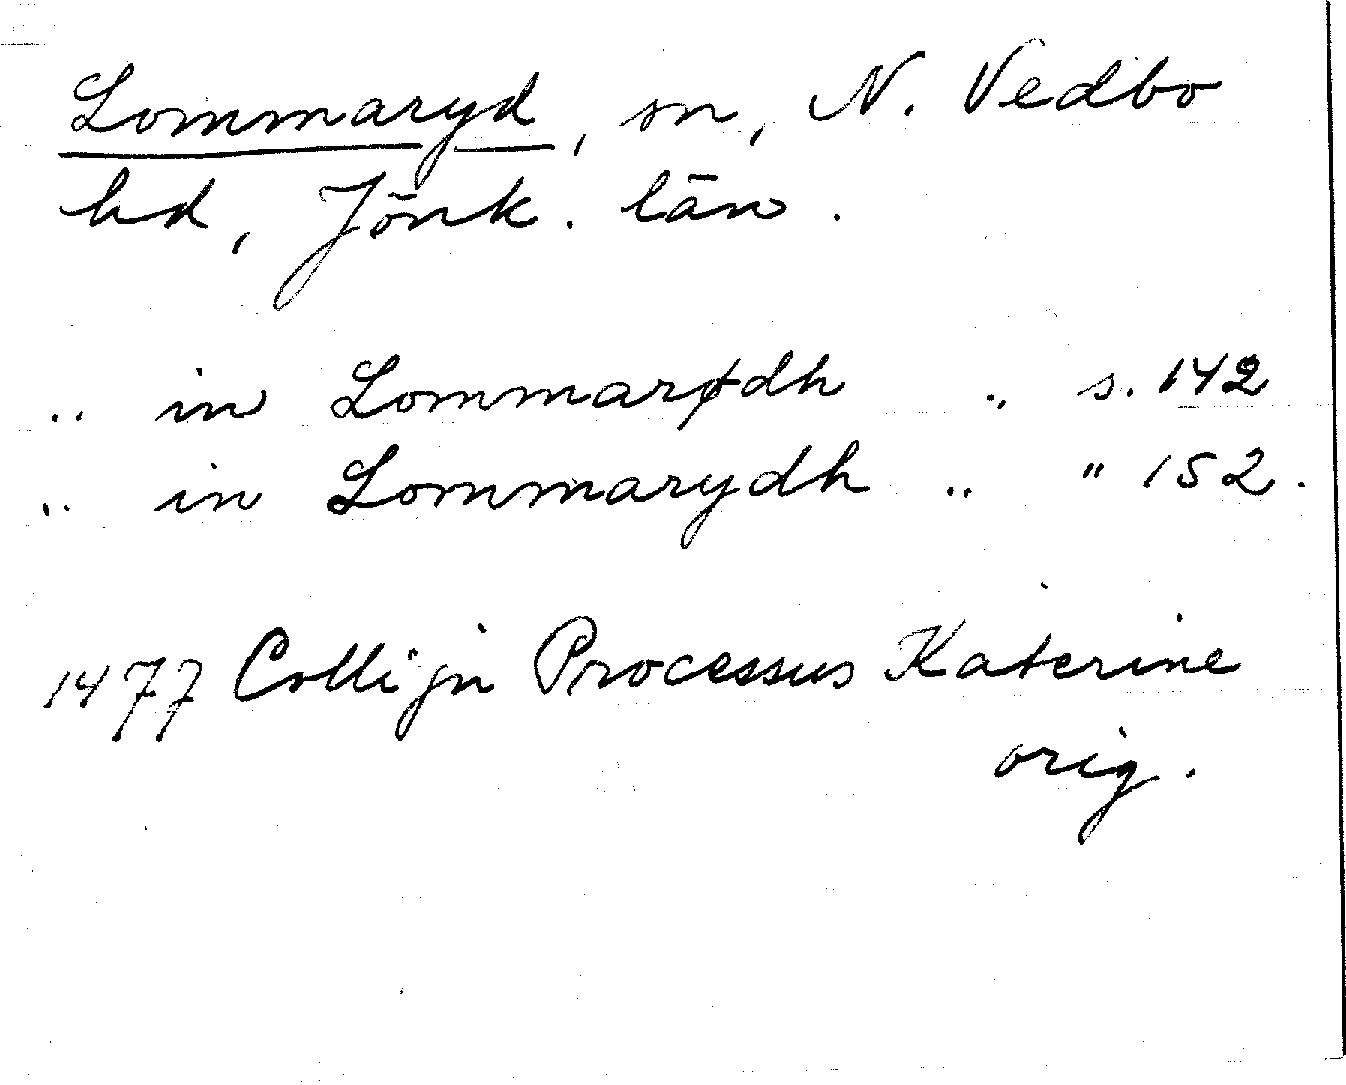 Lommaryd, sn, N. Vedbo
hd, Jönk. län.
.. in Lommarødh .. s. 142
.. in Lommarydh .. " 152.
1477 Collijn Processus Katerine
orig.